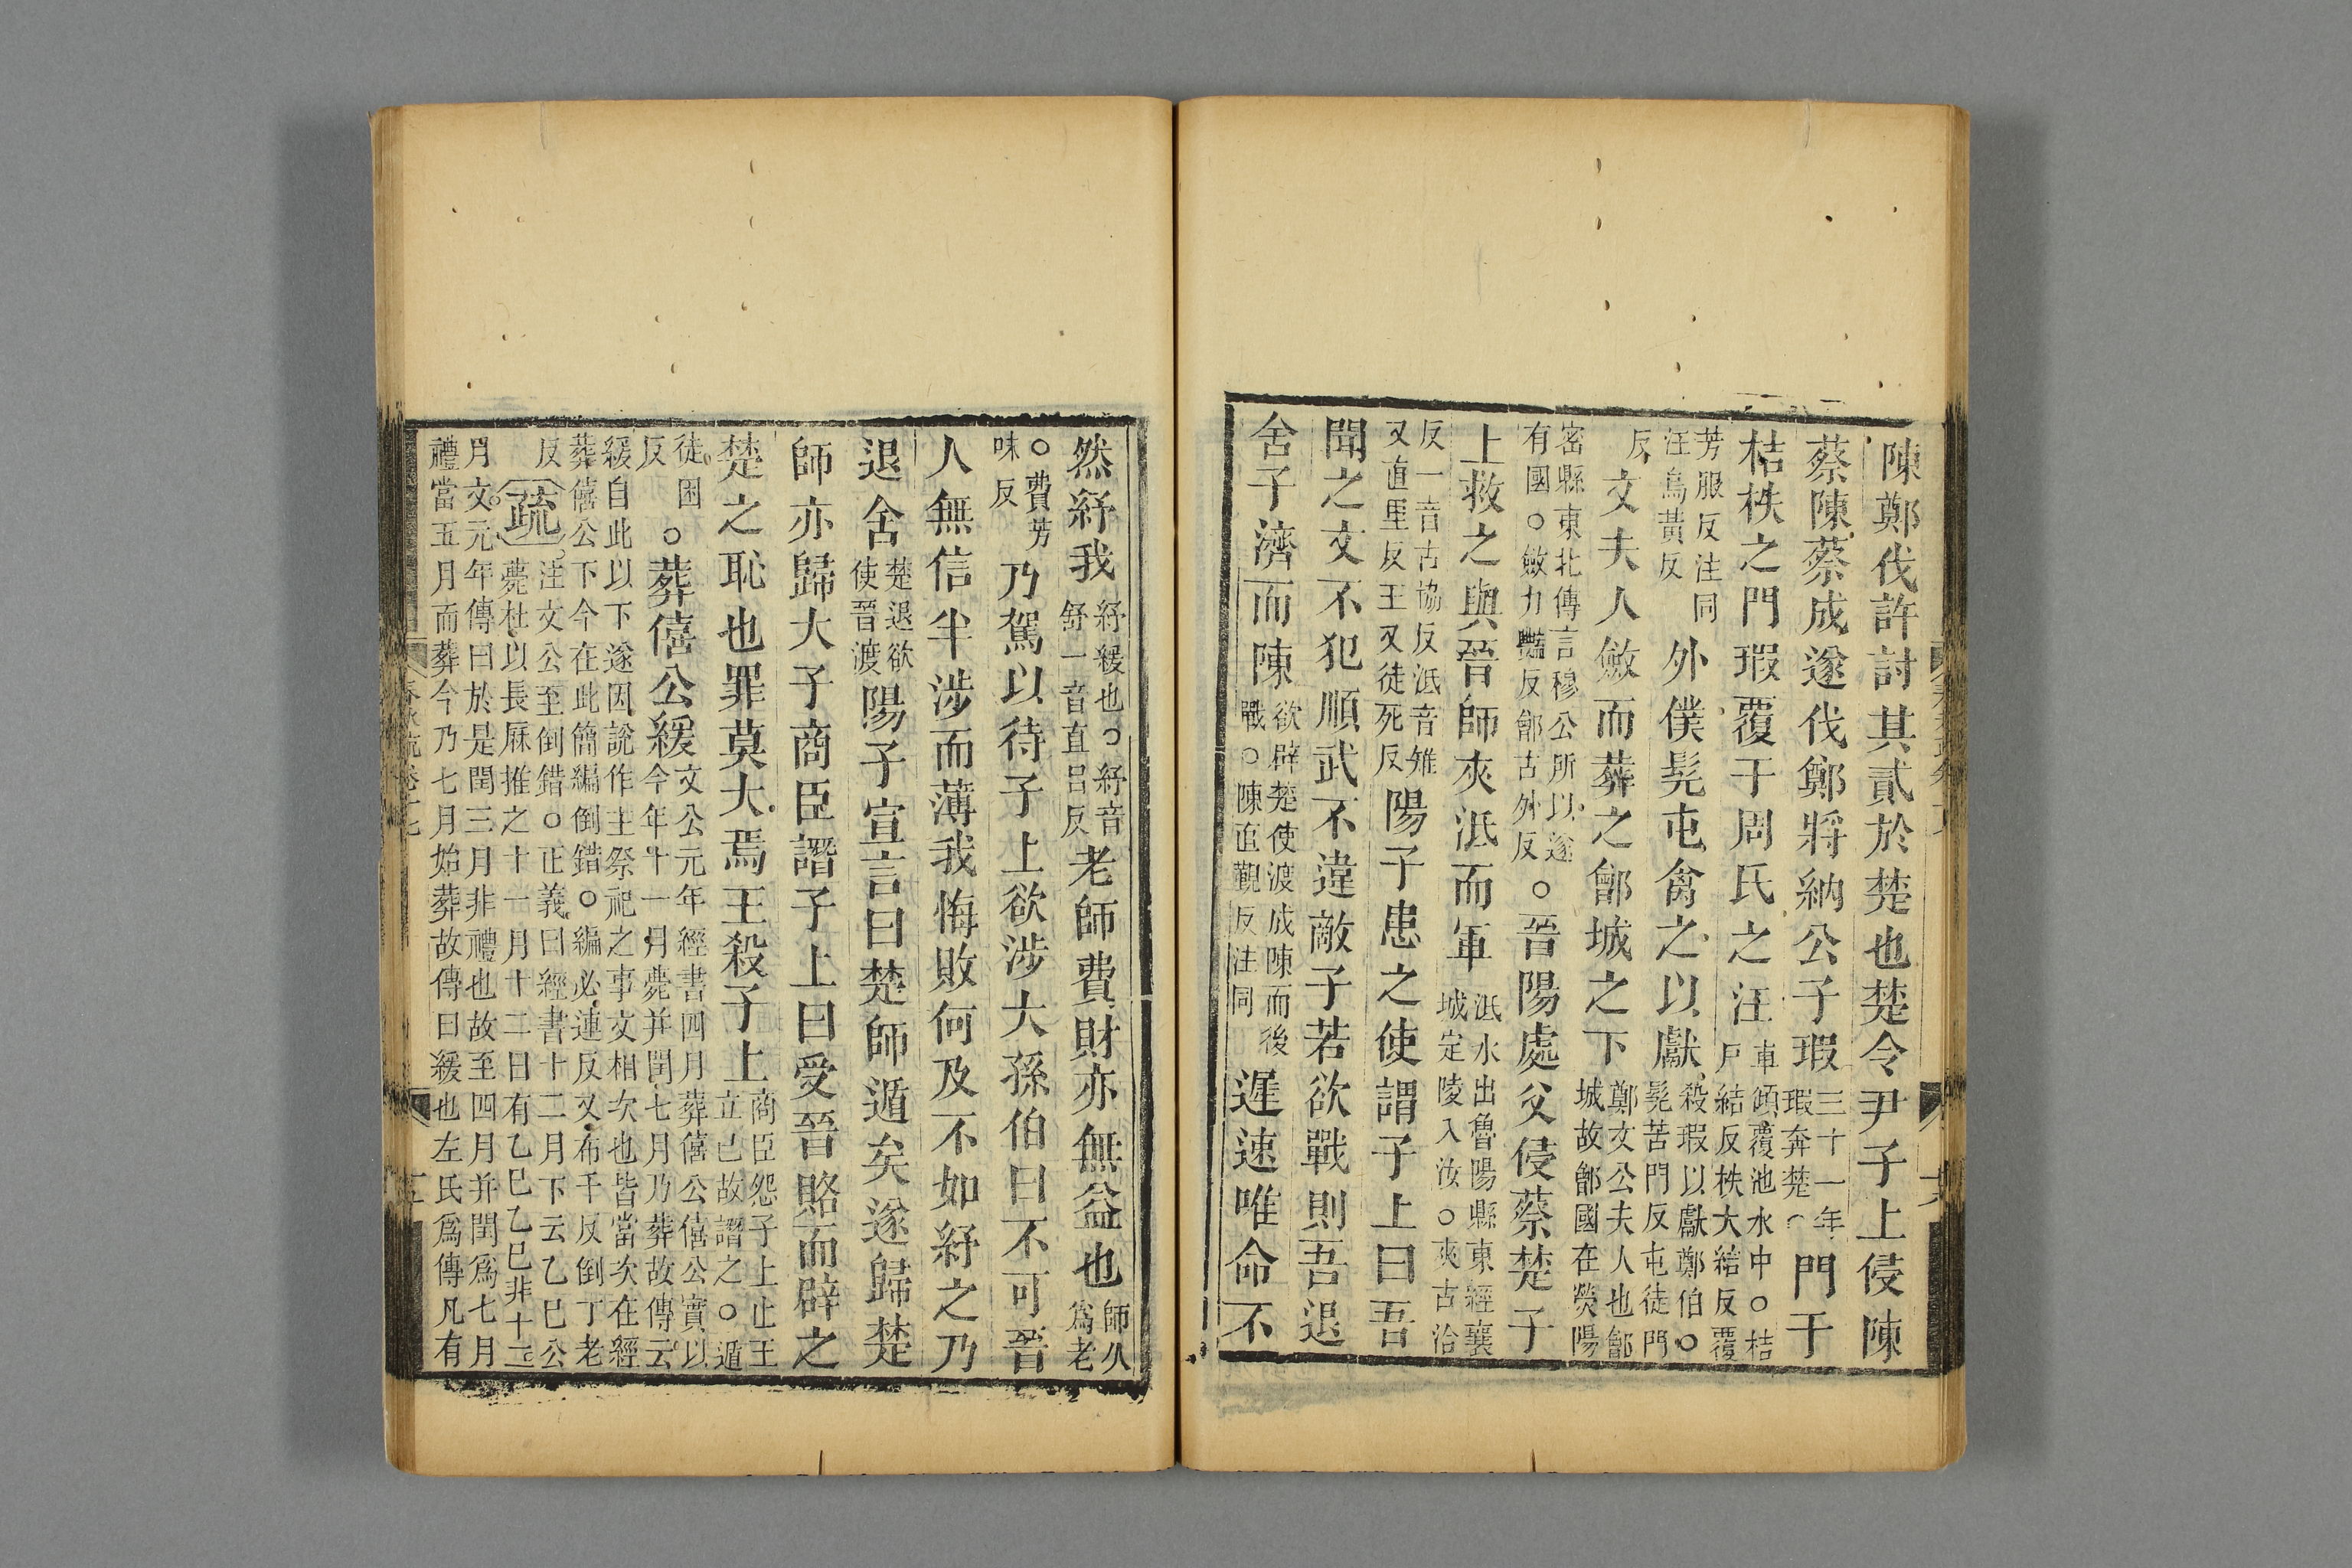 陳鄭伐許討其貳於楚也楚令尹子上侵陳
蔡陳蔡成遂伐鄭將納公子瑕三十一年瑕奔楚門于
桔柣之門瑕覆于周氏之汪車傾覆池水中○桔戶結反柣大結反覆
芳服反注同汪烏黃反外僕髡屯禽之以獻殺瑕以獻鄭伯○髡苦門反屯徒門
反文夫人斂而葬之鄶城之下鄭文公夫人也鄶城故鄶國在熒陽
密縣東北傳言穆公所以遂有國○斂力豔反鄶古外反○晉陽處父侵蔡楚子
上救之與晉師夾泜而軍泜水出魯陽縣東經襄城定陵入汝○夾古洽
反一音古協反泜音雉又直里反王又徒死反陽子患之使謂子上曰吾
聞之文不犯順武不違敵子若欲戰則吾退
舍子濟而陳欲辟楚使渡成陳而後戰○陳直覲反注同遲速唯命不
然紓我紓緩也○紓音舒一音直呂反老師費財亦無益也師久爲老
○費芳味反乃駕以待子上欲涉大孫伯曰不可晉
人無信半涉而薄我悔敗何及不如紓之乃
退舍楚退欲使晉渡陽子宣言曰楚師遁矣遂歸楚
師亦歸大子商臣譖子上曰受晉賂而辟之
楚之恥也罪莫大焉王殺子上商臣怨子上止王立已故譖之○遁
徒困反○葬僖公緩文公元年經書四月葬僖公僖公實以今年十一月薨并閏七月乃葬故傳云
緩自此以下遂因說作主祭祀之事文相次也皆當次在經葬僖公下今在此簡編倒錯○編必連反又布千反倒丁老
反疏注文公至倒錯○正義曰經書十二月下云乙巳公薨杜以長厤推之十一月十二日有乙巳乙巳非十二
月文元年傳曰於是閏三月非禮也故至四月并閏爲七月禮當五月而葬今乃七月始葬故傳曰緩也左氏爲傳凡有